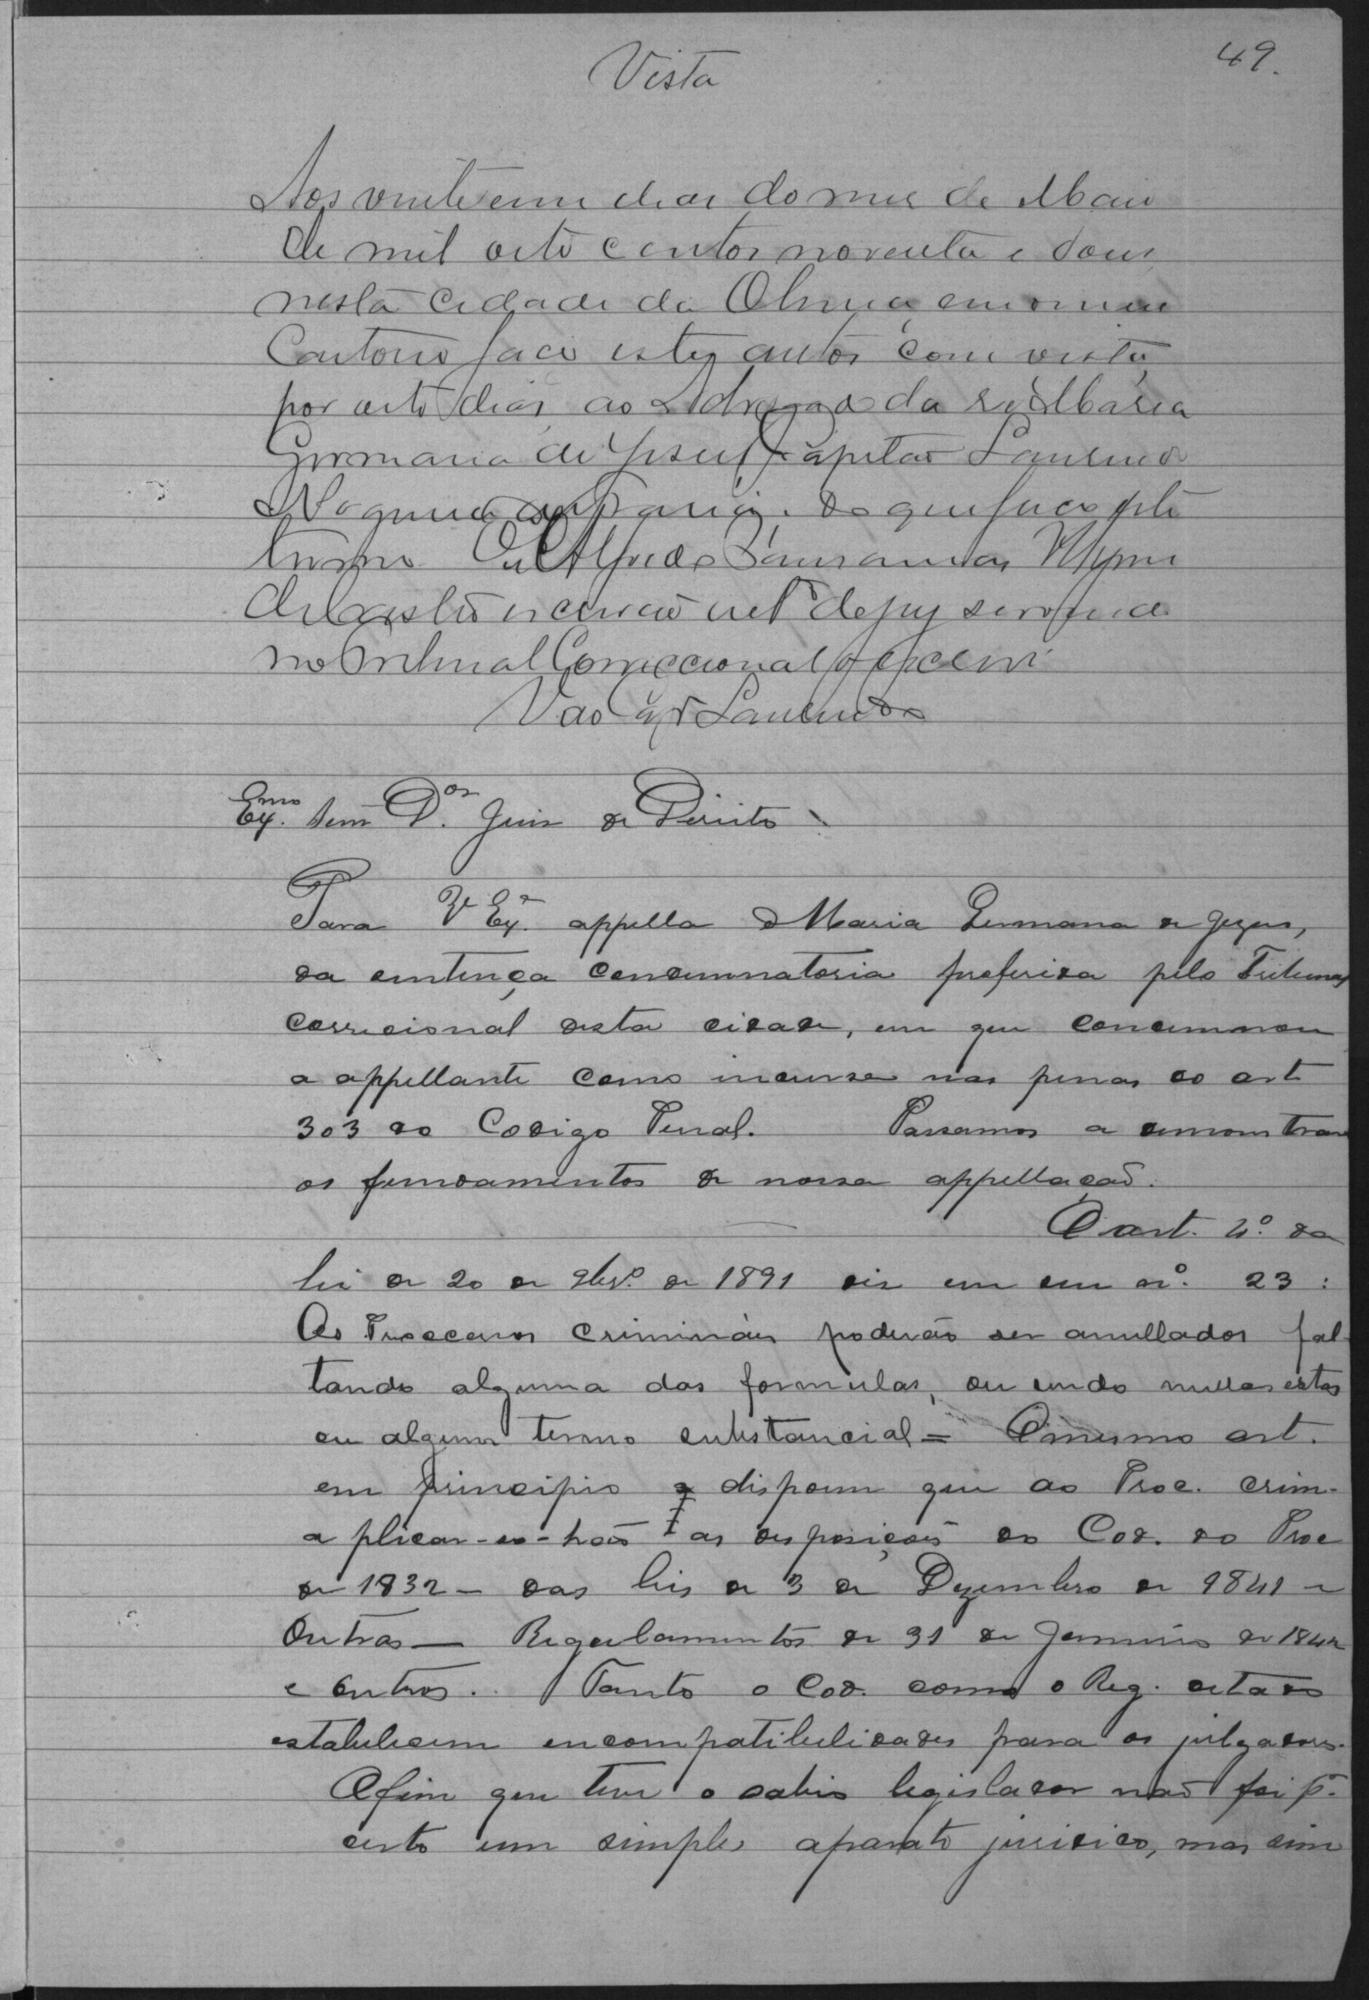 49.
Vista
Aos vinte e um dias do mes de Maio
de mil oito centos noventa e dous
nesta cidade da em o meu
Cartorio faço estes autos com vista,
por oito dias, ao Advogado da ré Maria
Germana de Jesus, Capitão Laurindo
do que faço este
termo. Eu Alfredo
de Castro escrivão
no Tribunal Correccional o escrevi
Vão Laurindo
Exmo. Senr. Dor. Juis de Direito
Para V Exa. appella Maria Germana de Jezus,
da sentença condemnatoria proferida pelo Tribunal
Correcional desta cidade, em que condemnou
a appellante como incursa nas penas do art
303 do Codigo Penal. Passamos a demonstrar
os fundamentos de nossa appellação.
O art. 4.º da
lei de 20 de 9br.º de 1891 diz em seu n.º 23:
Os Processos criminaes poderão ser anullados fal-
tando alguma das formulas, ou sendo nullas estas
ou algum termo substancial = O mesmo art.
em principio dispoem que ao Proc. crim.
aplicar-se-hão as desposições do Cod. do Proc
de 1832 - das leis de 3 de Dezembro de 1841 e
Outras — Regulamentos de 31 de Janeiro de 1842
e outros. Tanto o Cod. como o Reg. citado
estabelecem encompatibelidades para os julgadores.
O fim que teve o sabio legislador não foi p.r
certo um simples aparato juridico, mas sim